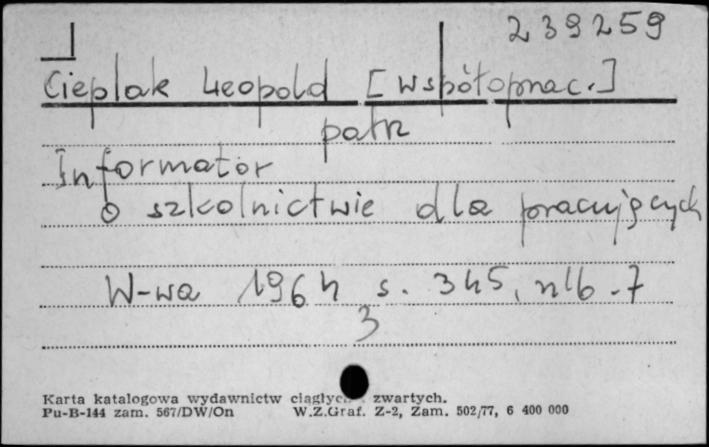 239259
Cieplak Leopold [współoprac.]
patrz
Informator
o szkolnictwie dla pracujących
W-wa 1964 s. 345, nlb. 7
3
Karta katalogowa wydawnictw ciągłych i zwartych.
Pu-B-144 zam. 567/DW/On W.Z.Graf. Z-2, Zam. 502/77, 6 400 000